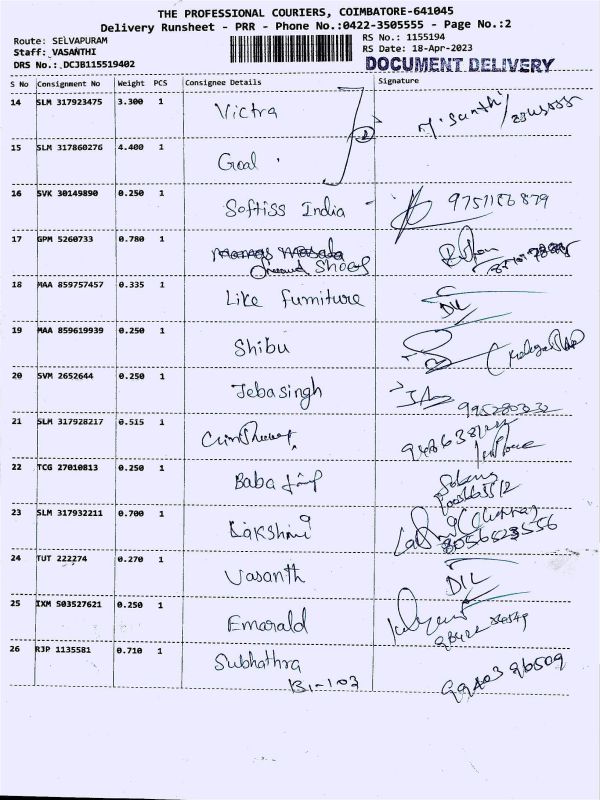 THE PROFESSIONAL COURIERS, COIMBATORE-641045
Delivery Runsheet - PRR - Phone No.:0422-3505555 - Page No.:2
Route: SELVAPURAM
Staff: VASANTHI
DRS No.: DCJB115519402
RS No.: 1155194
RS Date: 18-Apr-2023
DOCUMENT DELIVERY
S No Consignment No Weight PCS Consignee Details Signature
14 SLM 317923475 3.300 1 Victra
15 SLM 317860276 4.400 1 Goal
16 SVK 30149890 0.250 1 Softiss India
17 GPM 5260733 0.780 1 Shoes
18 MAA 859757457 0.335 1 Like furniture DIL
19 MAA 859619939 0.250 1 Shibu
20 SVM 2652644 0.250 1 Jebasingh
21 SLM 317928217 0.515 1
22 TCG 27010813 0.250 1 Baba
23 SLM 317932211 0.700 1 Lakshmi 8056523556
24 TUT 222274 0.270 1 Vasanth DIL
25 IXM 503527621 0.250 1 Emarald
26 RJP 1135581 0.710 1 Subhathra
B1-102 99403 96509